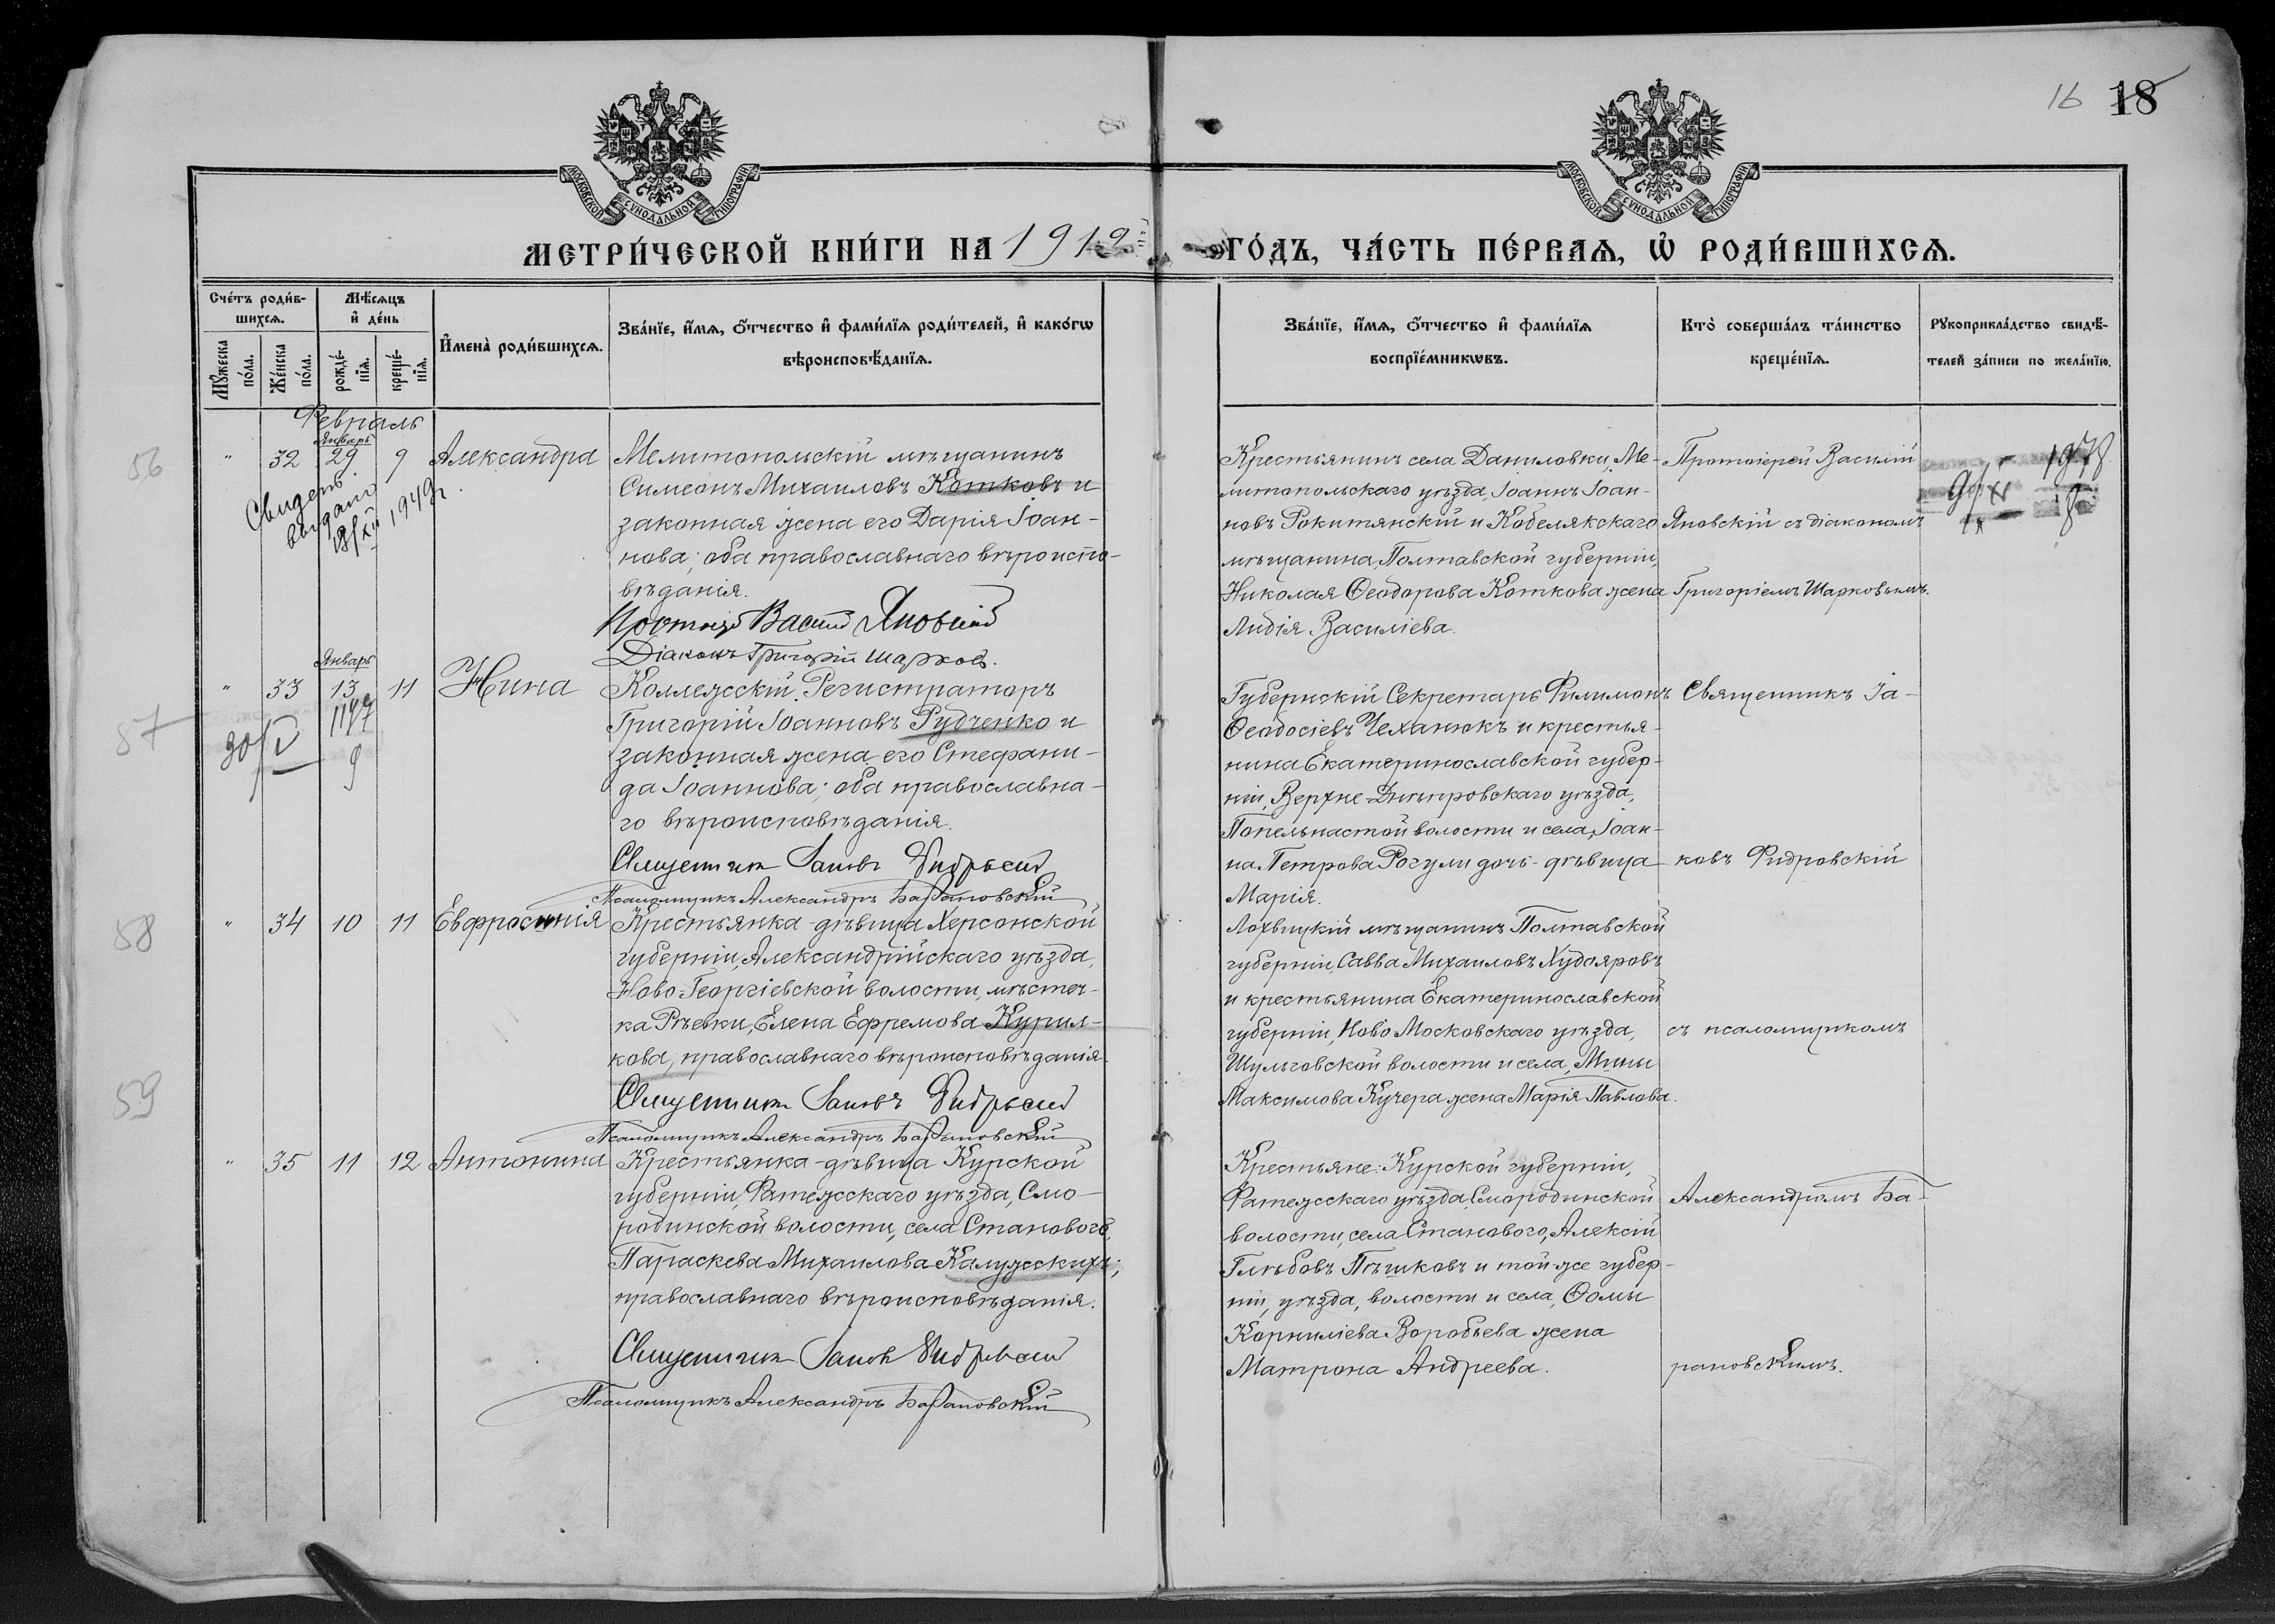 16 18
МОСКОВСКОЙ СУНОДАЛЬНОЙ ТИПОГРАФІИ
МОСКОВСКОЙ СУНОДАЛЬНОЙ ТИПОГРАФІИ
МЕТРИ́ЧЕСКОЙ КНИ́ГИ НА 1912й
ГО́ДЪ, ЧА́СТЬ ПЕ́РВАѦ, Ѽ РОДИ́ВШИХСѦ.
Сче́тъ роди́в-
шихсѧ.
Мꙋ́жеска по́ла.
Же́нска по́ла.
Мѣ́сѧцъ
и҆ де́нь
рожде́-
нїѧ.
креще́-
нїѧ.
И҆мена̀ роди́вшихсѧ.
Зва́нїе, и҆́мѧ, ѻ҆́тчество и҆ фами́лїѧ роди́телей, и҆ како́гѡ
вѣроисповѣ́данїѧ.
Зва́нїе, и҆́мѧ, ѻ҆́тчество и҆ фами́лїѧ
воспрїе́мникѡвъ.
Кто̀ соверша́лъ та́инство
креще́нїѧ.
Рꙋкоприкла́дство свидѣ́-
телей за́писи по жела́нїю.
Февраль
56
" 32 Январь 29 9 Александра
Свидет.
выдано
18/XII 1949г.
Мелитопольскій мѣщанинъ
Симеонъ Михаиловъ Котковъ и
законная жена его Дарія Іоан-
нова; оба православнаго вѣроиспо-
вѣданія.
Протоіер Василій Яновскій
Діаконъ Григорій Шарковъ.
Крестьянинъ села Даниловки, Ме-
литопольскаго уѣзда, Іоаннъ Іоан-
новъ Рокитянскій и Кобелякскаго
мѣщанина, Полтавской губерніи,
Николая Ѳеодорова Коткова жена
Лидія Василіева.
Протоіерей Василій
Яновскій съ діакономъ
Григоріемъ Шарковымъ.
57
" 33 Январь 13 11 Нина
30/V
Коллежскій Регистраторъ
Григорій Іоанновъ Рудченко и
законная жена его Стефани-
да Іоаннова; оба православна-
го вѣроисповѣданія.
Священникъ Іаковъ Фидровскій
Псаломщикъ Александръ Барановскій
Губернскій Секретарь Филимонъ
Ѳеодосіевъ Чеханюкъ и крестья-
нина Екатеринославской губер-
ніи, Верхне-Днѣпровскаго уѣзда,
Попельнастой волости и села, Іоан-
на Петрова Рогули дочь-дѣвица
Марія.
Священникъ Іа-
ковъ Фидровскій
58
" 34 10 11 Евфросинія
Крестьянка-дѣвица Херсонской
губерніи, Александрійскаго уѣзда,
Ново-Георгіевской волости, мѣстеч-
ка Рѣевки, Елена Ефремова Курил-
кова, православнаго вѣроисповѣданія.
Священникъ Іаковъ Фидровскій
Псаломщикъ Александръ Барановскій
Лохвицкій мѣщанинъ Полтавской
губерніи, Савва Михаиловъ Худояровъ
и крестьянина Екатеринославской
губерніи, Ново Московскаго уѣзда,
Шульговской волости и села, Мины
Максимова Кучера жена Марія Павлова.
съ псаломщикомъ
59
" 35 11 12 Антонина
Крестьянка-дѣвица Курской
губерніи, Фатежскаго уѣзда, Смо-
родинской волости, села Становогѡ,
Параскева Михаилова Калужскихъ;
православнаго вѣроисповѣданія.
Священникъ Іаковъ Фидровскій
Псаломщикъ Александръ Барановскій
Крестьяне: Курской губерніи,
Фатежскаго уѣзда, Смородинской
волости, села Становаго, Алексій
Глѣбовъ Пѣшковъ и той-же губер-
ніи, уѣзда, волости и села, Ѳомы
Корниліева Воробьева жена
Матрона Андреева.
Александромъ Ба-
рановскимъ.